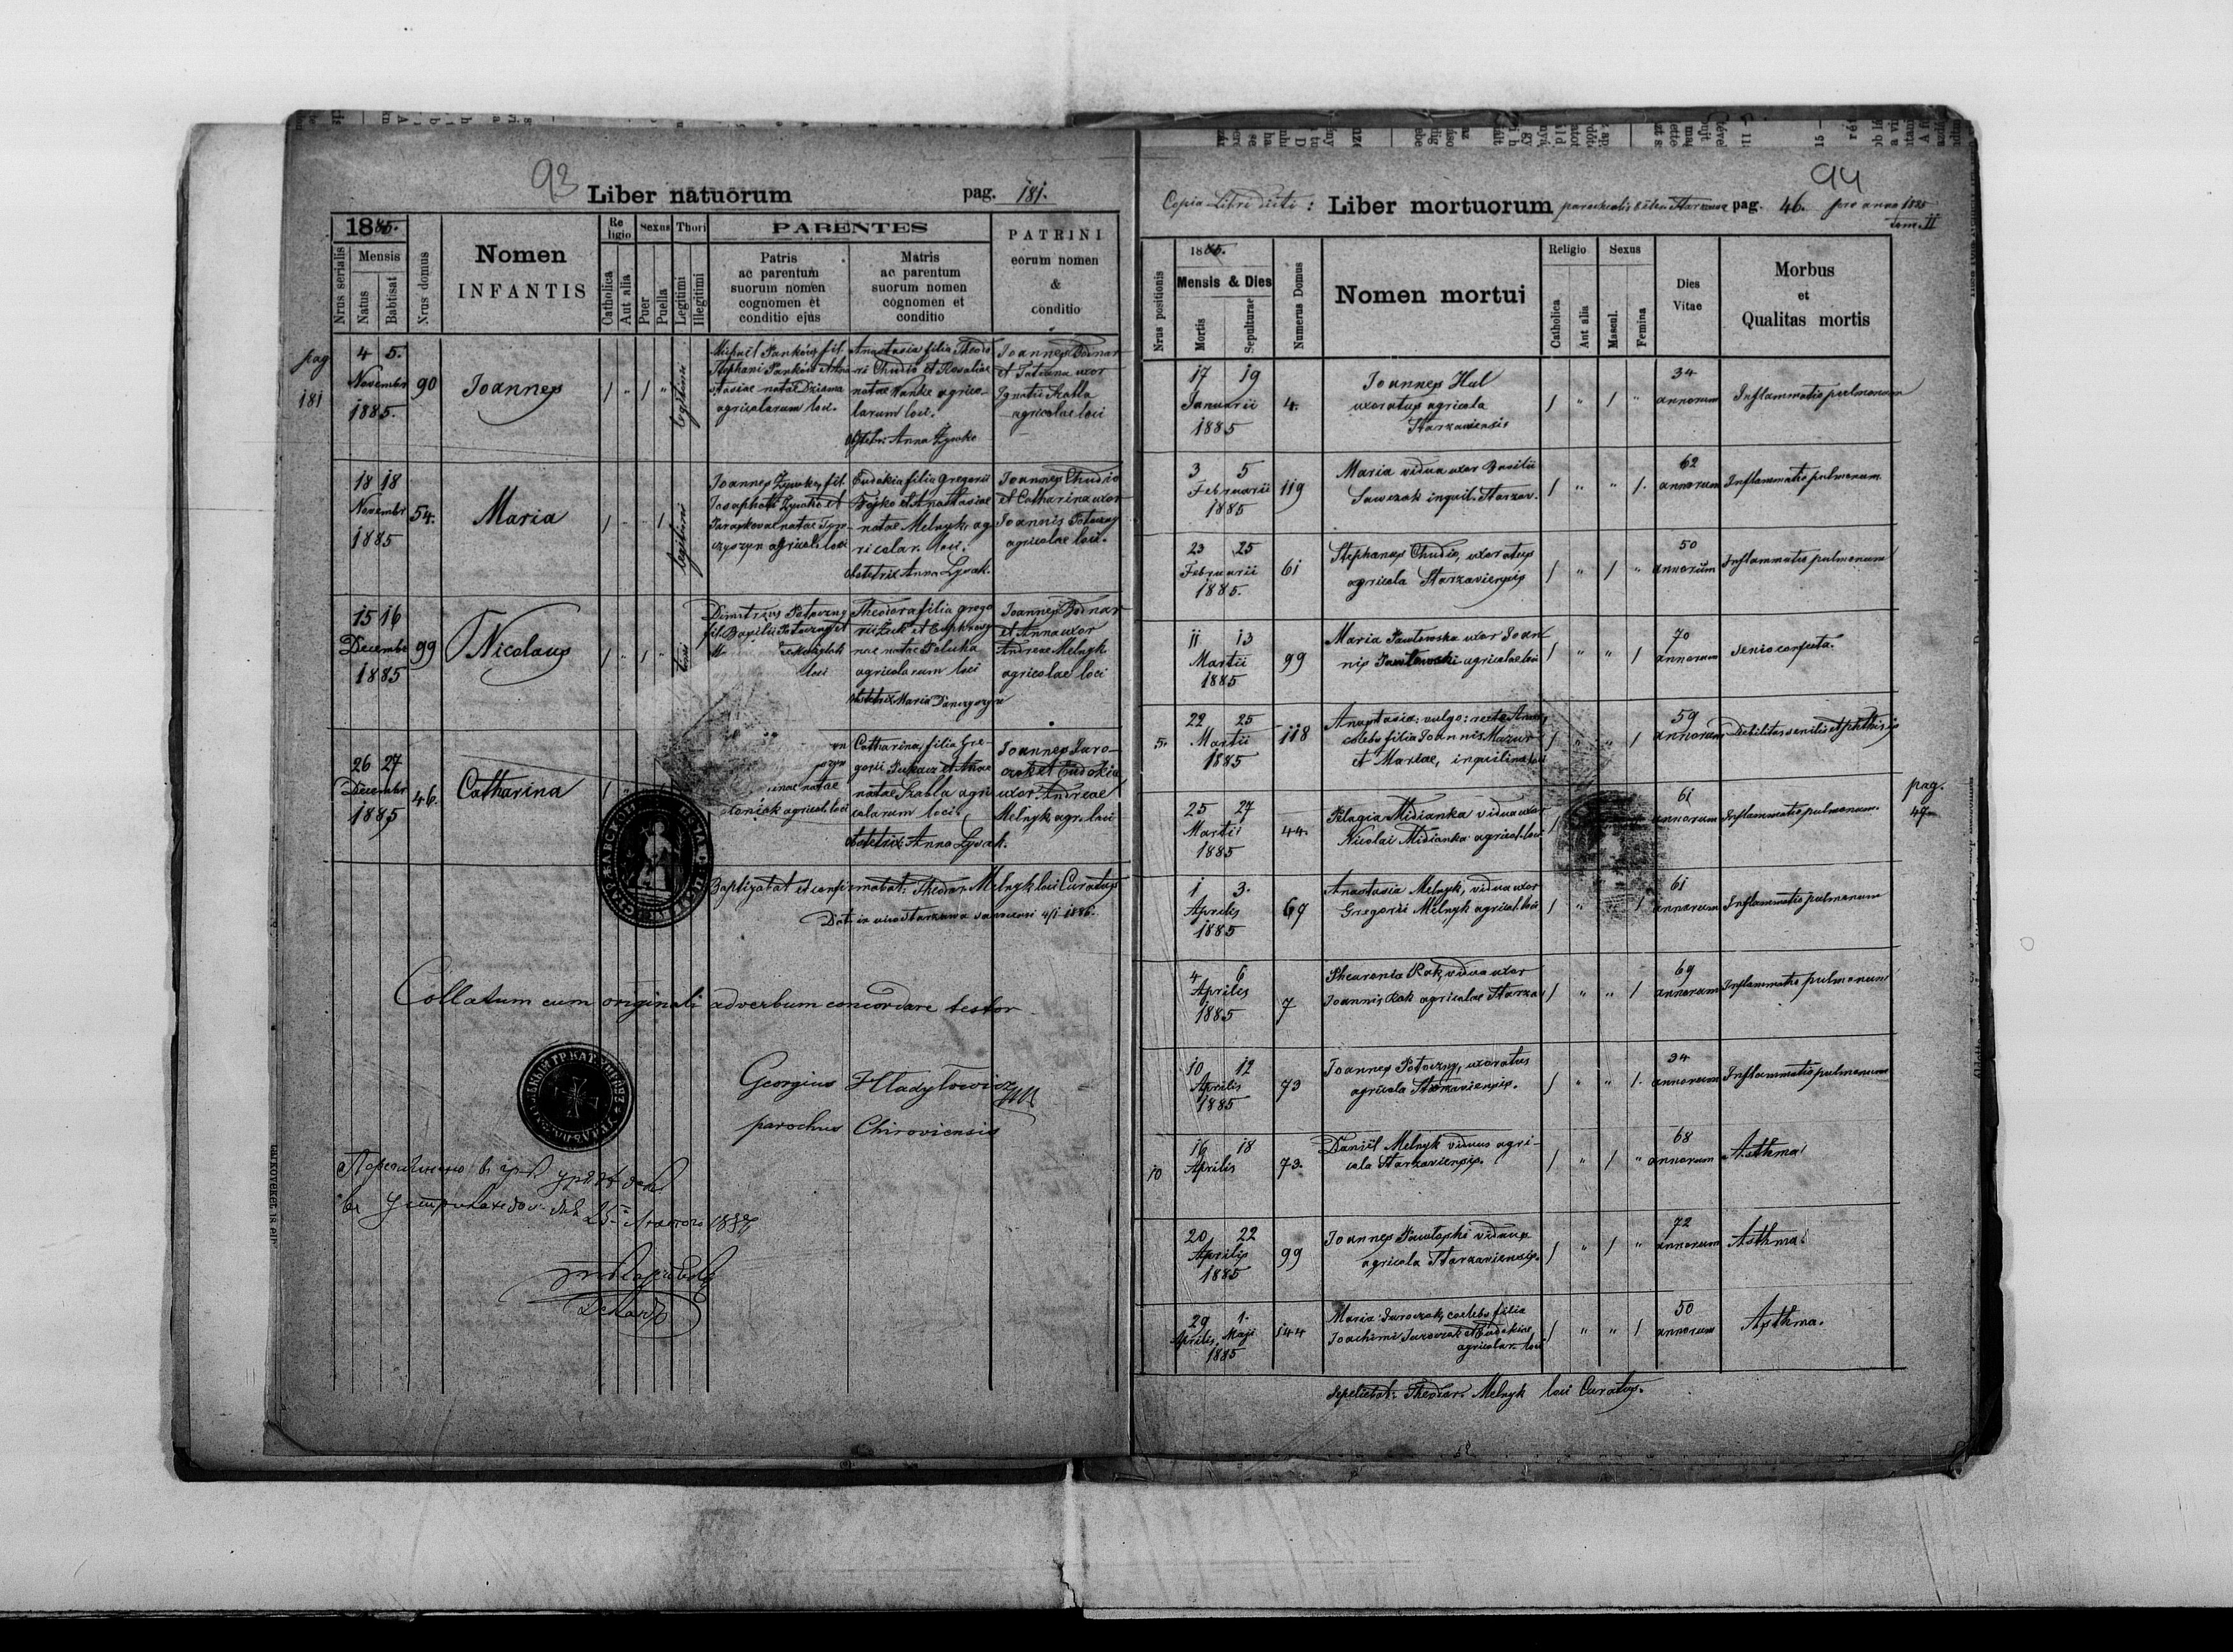 93
Liber natuorum pag. 181.
1885.
Nrus serialis
Mensis
Natus
Babtisat
Nrus domus
Nomen
INFANTIS
Re
ligio
Catholica
Aut alia
Sexus
Puer
Puella
Thori
Legitimi
Illegitimi
PARENTES
Patris
ac parentum
suorum nomen
cognomen et
conditio ejus
Matris
ac parentum
suorum nomen
cognomen et
conditio
PATRINI
eorum nomen
&
conditio
pag
181
4 5.
November
1885.
90
Joannes
legitimi
Michaël Panków, fil.
Stephani Panków et Ana
stasiae natae Dziama
agricolarum loci.
Anastasia filia Theodo
ri Chudio et Rosaliae
natae Wanke agrico-
larum loci.
Obstetr: Anna Żywko
Joannes Bodnar
et Tatiana uxor
Ignatii Skabla
agricolae loci
18 18
Novembr
1885
54.
Maria
legitimi
Joannes Żywko, fil.
Josaphati Żywko et
Paraskevae natae
agricol. loci
Eudokia filia Gregorii
Bojko et Anastasiae
natae Melnyk, ag
ricolar. loci.
obstetrix Anna Lysak.
Joannes Chudio
et Catharina uxor
Joannis Potoczny
agricolae loci.
15 16
Decembr
1885
99
Nicolaus
Dimitrius Potoczny
fil. Basilii Potoczny et
loci
Theodora filia Grego
rii Żuk et Euphrosy
nae natae Paluha
agricolarum loci
obstetrix Maria
Joannes Bodnar
et Anna uxor
Andreae Melnyk
agricolae loci
26 27
December
1885
46.
Catharina
inae natae
agricol. loci
Catharina, filia Gre-
gorii Pukacz et Annae
natae Skabla agri
colarum loci.
obstetrix Anna Lysak.
Joannes Jaro-
czak et Eudokia
uxor Andreae
Melnyk agr. loci
Baptizabat et confirmabat: Theodor. Melnyk loci Curatus
Dat in vico Starzawa 4/1 1886.
Collatum cum originali ad verbum concordare testor
Georgius Hladyłowicz
parochus Chiroviensis
94
Copia Libri dicti: Liber mortuorum parochialis Starzawa pag. 46. pro anno 1885
tom. II
Nrus positionis
1885.
Mensis & Dies
Mortis
Sepulturae
Numerus Domus
Nomen mortui
Religio
Catholica
Aut alia
Sexus
Mascul.
Femina
Dies
Vitae
Morbus
et
Qualitas mortis
17 19
Januarii
1885
4.
Joannes Hul
uxoratus agricola
Starzaviensis
34
annorum
Inflammatio pulmonum
3 5
Februarii
1885
119
Maria vidua uxor Basilii
Sawczak inquil. Starzav.
62
annorum
Inflammatio pulmonum
23 25
Februarii
1885.
61
Stephanus Chudio, uxoratus
agricola Starzaviensis
50
annorum
Inflammatio pulmonum
11 13
Martii
1885
99
Maria Pawłowska uxor Joan
nis Pawłowski agricolae loci
70
annorum
Senio confecta.
5.
22 25
Martii
1885
118
Anastasia: vulgo: recte Anna,
coelebs filia Joannis Mazur
et Mariae, inquilina loci
59
annorum
Debilitas senilis et phthisis
pag.
47
25 27
Martii
1885
44.
Pelagia Midianka vidua uxor
Nicolai Midianka agricol. loci
61
annorum
Inflammatio pulmonum.
1 3.
Aprilis
1885
67
Anastasia Melnyk, vidua uxor
Gregorii Melnyk agricol. loci
61
annorum
Inflammatio pulmonum
4 6
Aprilis
1885
7
Rak, vidua uxor
Joannis Rak agricolae Starza
69
annorum
Inflammatio pulmonum
10 12
Aprilis
1885
73
Joannes Potoczny, uxoratus
agricola Starzaviensis.
34
annorum
Inflammatio pulmonum
10
16 18
Aprilis
73.
Daniël Melnyk viduus agri-
cola Starzaviensis.
68
annorum
Asthma
20 22
Aprilis
1885
99
Joannes Pawłoski viduus
agricola Starzaviensis.
72
annorum
Asthma
29 1.
Aprilis Maji
1885
144
Maria Jaroczak, coelebs filia
Joachimi Jaroczak et Eudokiae
agricolar. loci
50
annorum
Asthma.
Sepeliebat: Theodor. Melnyk loci Curatus.